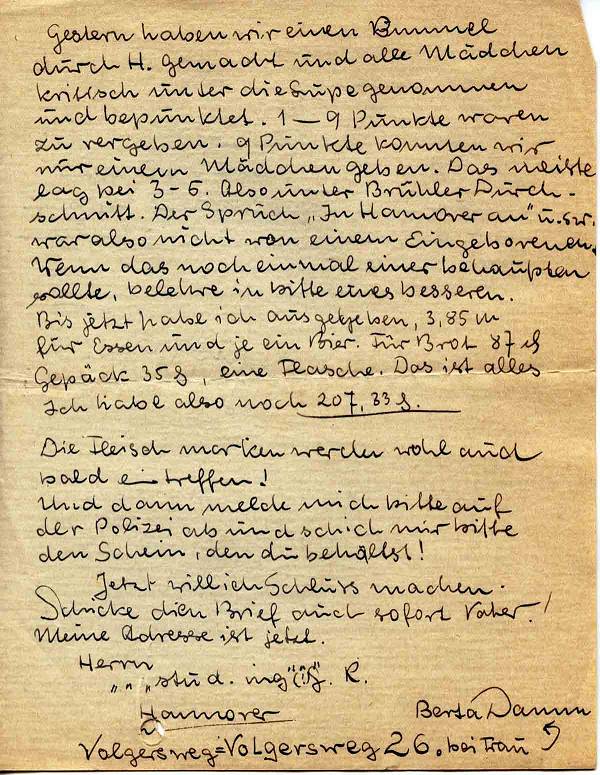 Gestern haben wir einen Bummel
durch H. gemacht und alle Mädchen
kritisch unter die Lupe genommen
und bepunktet. 1–9 Punkte waren
zu vergeben. 9 Punkte konnten wir
nur einem Mädchen geben. Das meiste
lag bei 3–6. Also unter Brühler Durch-
schnitt. Der Spruch „In Hannover an" u.s.w.
war also nicht von einem Eingeborenen.
Wenn das noch einmal einer behaupten
sollte, belehre in bitte eines besseren.
Bis jetzt habe ich ausgegeben, 3,85 M
für Essen und je ein Bier. Für Brot 87 ₰
Gepäck 35 ₰, eine Flasche. Das ist alles
Ich habe also noch 207,33 ₰.
Die Fleischmarken werden wohl auch
bald eintreffen!
Und dann melde mich bitte auf
der Polizei ab und schick mir bitte
den Schein, den du behältst!
Jetzt will ich Schluss machen.
Schicke dien Brief auch sofort Vater!
Meine Adresse ist jetzt.
Herrn
„ „ „ stud. ing. R.
Hannover
Berta Damm
Volgersweg=Volgersweg 26. bei Frau